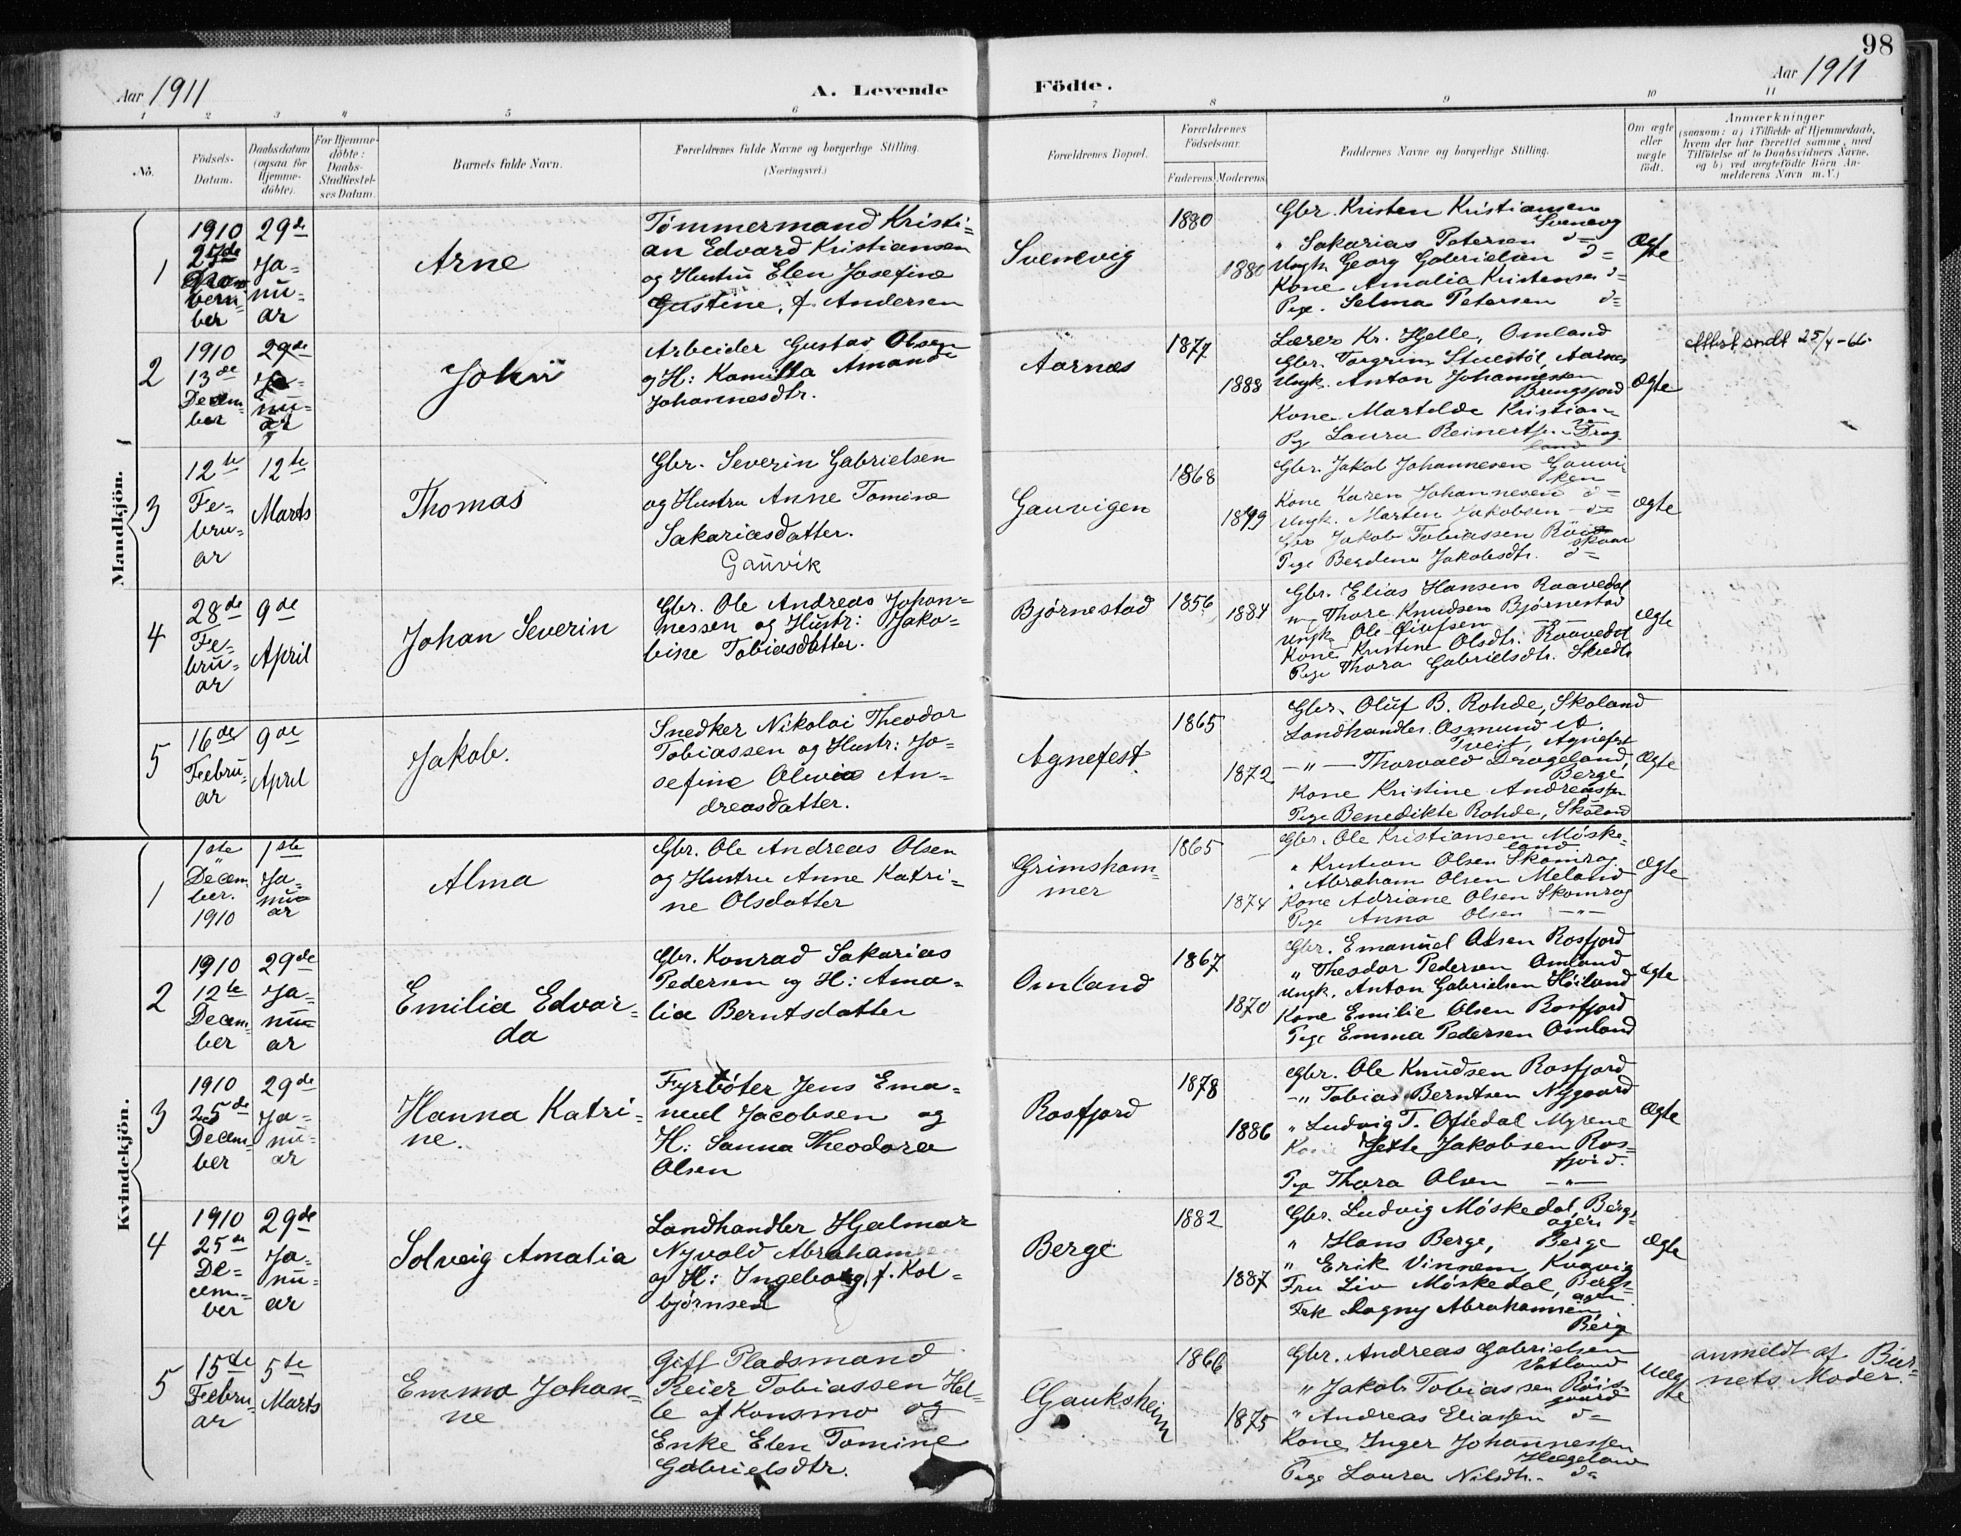 98
Aar 1911
A. Levende
Födte.
Aar 1911
1 2 3 4 5 6 7 8 9 10 11
No.
Födsels-
Datum.
Daabsdatum
(ogsaa for
Hjemme-
döbte).
For Hjemme-
döbte:
Daabs-
Stadfæstel-
ses Datum.
Barnets fulde Navn.
Forældrenes fulde Navne og borgerlige Stilling.
(Næringsvei.)
Forældrenes Bopæl.
Forældrenes
Födselsaar.
Faderens. Moderens.
Faddernes Navne og borgerlige Stilling.
Om ægte
eller
uægte
födt.
Anmærkninger
(saasom: a) i Tilfælde af Hjemmedaab,
hvem der har forrettet samme, med
Tilföielse af to Daabsvidners Navne,
og b) ved uægtefödte Börn An-
melderens Navn m. V.)
Mandkjön.
1
1910
27de
Novem-
ber
29de
Ja-
nu-
ar
Arne
Tømmermand Kristi-
an Edvard Kristiansen
og Hustru Elen Josefine
Gustine, f. Andersen
Svenevig
1880
1880
Gbr. Kristen Kristiansen
Svenevig
" Sakarias Petersen d=
Ungk. Georg Gabrielsen d=
Kone Amalia Kristensen d=
Pige. Selma Petersen d=
Ægte
2
1910
13de
Decem-
ber
29de
Ja-
nu-
ar
John
Arbeider Gustav Olsen
og H: Kamilla Amanda
Johannesdtr.
Aarnæs
1877
1888
Lærer Kr. Hjelle, Omland
Gbr. Torgrim Stuestøl, Aarnes
Ungk. Anton Johannessen
Bringsjord
Kone Martolde Kristian-
Pg Laura Reinertsen Drag
land
Ægte
Attest sendt 25/4-66.
3
12te
Fe-
bru-
ar
12te
Marts
Thomas
Gbr. Severin Gabrielsen
og Hustru Anne Tomine
Sakariasdatter.
Gauvik
Gauvigen
1868
1879
Gbr. Jakob Johannesen Gauvi-
ken
Kone Karen Johannesen d=
Ungk. Marten Jakobsen d=
Gbr Jakob Tobiassen Röis
skaar
Pige Berdine Jakobsdtr. d=
Ægte
4
28de
Fe-
bru-
ar
9de
April
Johan Severin
Gbr. Ole Andreas Johan-
nessen og Hustr: Jako-
bine Tobiasdatter.
Bjørnestad
1856
1884
Gbr. Elias Hansen Raavedal
" Thore Knudsen Bjørnestad
Ungk Ole Olufsen —"—
Kone Kristine Olsdtr. Raavedal
Pige Thora Gabrielsdtr.
Ægte
5
16de
Febru-
ar
9de
April
Jakob.
Snedker Nikolai Theodor
Tobiassen og Hustr: Jo-
sefine Olivia An-
dreasdatter.
Agnefest
1865
1872
Gbr. Oluf B. Rohde, Skoland
Landhandler. Osmund A.
Tveit, Agnefest
—"— Thorvald Drageland,
Berge
Kone Kristine Andreassen
Pige Benedikte Rohde, Skoland
Ægte
Kvindekjön.
1
1ste
Decem-
ber.
1910
1ste
Ja-
nu-
ar
Alma
Gbr. Ole Andreas Olsen
og Hustru Anne Katri-
ne Olsdatter
Grimsham-
mer
1865
1874
Gbr. Ole Kristiansen Møske-
land
" Kristian Olsen Skomrag
" Abraham Olsen Meland
Kone Adriane Olsen Skomrag
Pige Anna Olsen —"—
Ægte
2
1910
12te
Decem-
ber
29de
Ja-
nu-
ar
Emilia Edvar-
da
Gbr. Konrad Sakarias
Pedersen og H: Ama-
lia Berntsdatter
Omland
1867
1870
Gbr. Emanuel Olsen Rosfjord
" Theodor Pedersen Omland
Ungk. Anton Gabrielsen Höiland
Kone Emilie Olsen Rosfjord
Pige Emma Pedersen Omland
Ægte
3
1910
25de
Decem-
ber
29de
Ja-
nu-
ar
Hanna Katri-
ne.
Fyrbøter Jens Ema-
nuel Jacobsen og
H: Sanna Theodora
Olsen
Rosfjord
1878
1886
Gbr. Ole Knudsen Rosfjord
—" Tobias Berntsen Nygaard
" Ludvig T. Oftedal Myrene
Kone Jette Jakobsen Ros-
fjord.
Pige Thora Olsen —"—
Ægte
4
1910
25de
De-
cem-
ber
29de
Ja-
nu-
ar
Solveig Amalia
Landhandler Hjalmar
Nyvold Abrahamsen
og H: Ingeborg, f. Kol-
bjørnsen
Berge
1882
1887
Gbr. Ludvig Møskedal, Bergs-
ageren
" Hans Berge, Berge
" Erik Vinnem, Kvavig
Fru Liv Møskedal, Bergs-
ager
Frk Dagny Abrahamsen,
Berge
Ægte
5
15de
Febru-
ar
5te
Marts
Emma Johan-
ne
Gift Pladsmand
Reier Tobiassen Hel-
le af Konsmo og
Enke Elen Tomine
Gabrielsdtr.
Gauksheim
1866
1875
Gbr. Andreas Gabrielsen
Vatland
" Jakob Tobiassen Röis-
gaard
" Andreas Eliassen d=
Kone Inger Johannessen
Hægeland
Pige Laura Nilsdtr. d=
Uæg-
te
anmeldt af Bar-
nets Moder.